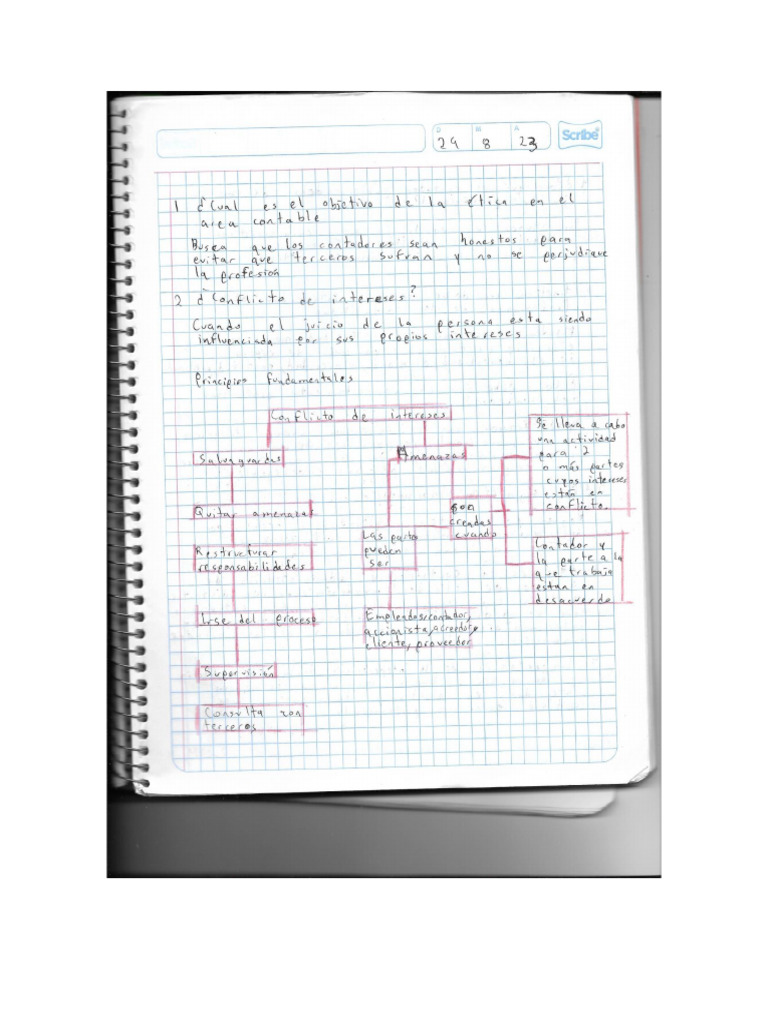 D M A
29 8 23
Scribe
1 ¿Cual es el objetivo de la ética en el
area contable
Busca que los contadores sean honestos para
evitar que terceros sufran y no se perjudique
la profesión
2 ¿Conflicto de intereses?
Cuando el juicio de la persona esta siendo
influenciada por sus propios intereses
Principios fundamentales
Conflicto de intereses
Salvaguardas
Quitar amenazas
Restructurar
responsabilidades
Irse del proceso
Supervisión
Consulta con
terceros
Amenazas
Las parts
pueden
ser
Empleados,contador,
accionista,acreedor,
cliente, proveedor
son
creadas
cuando
Se lleva a cabo
una actividad
para 2
o más partes
cuyos intereses
están en
conflicto.
Contador y
la parte a la
que trabaja
están en
desacuerdo